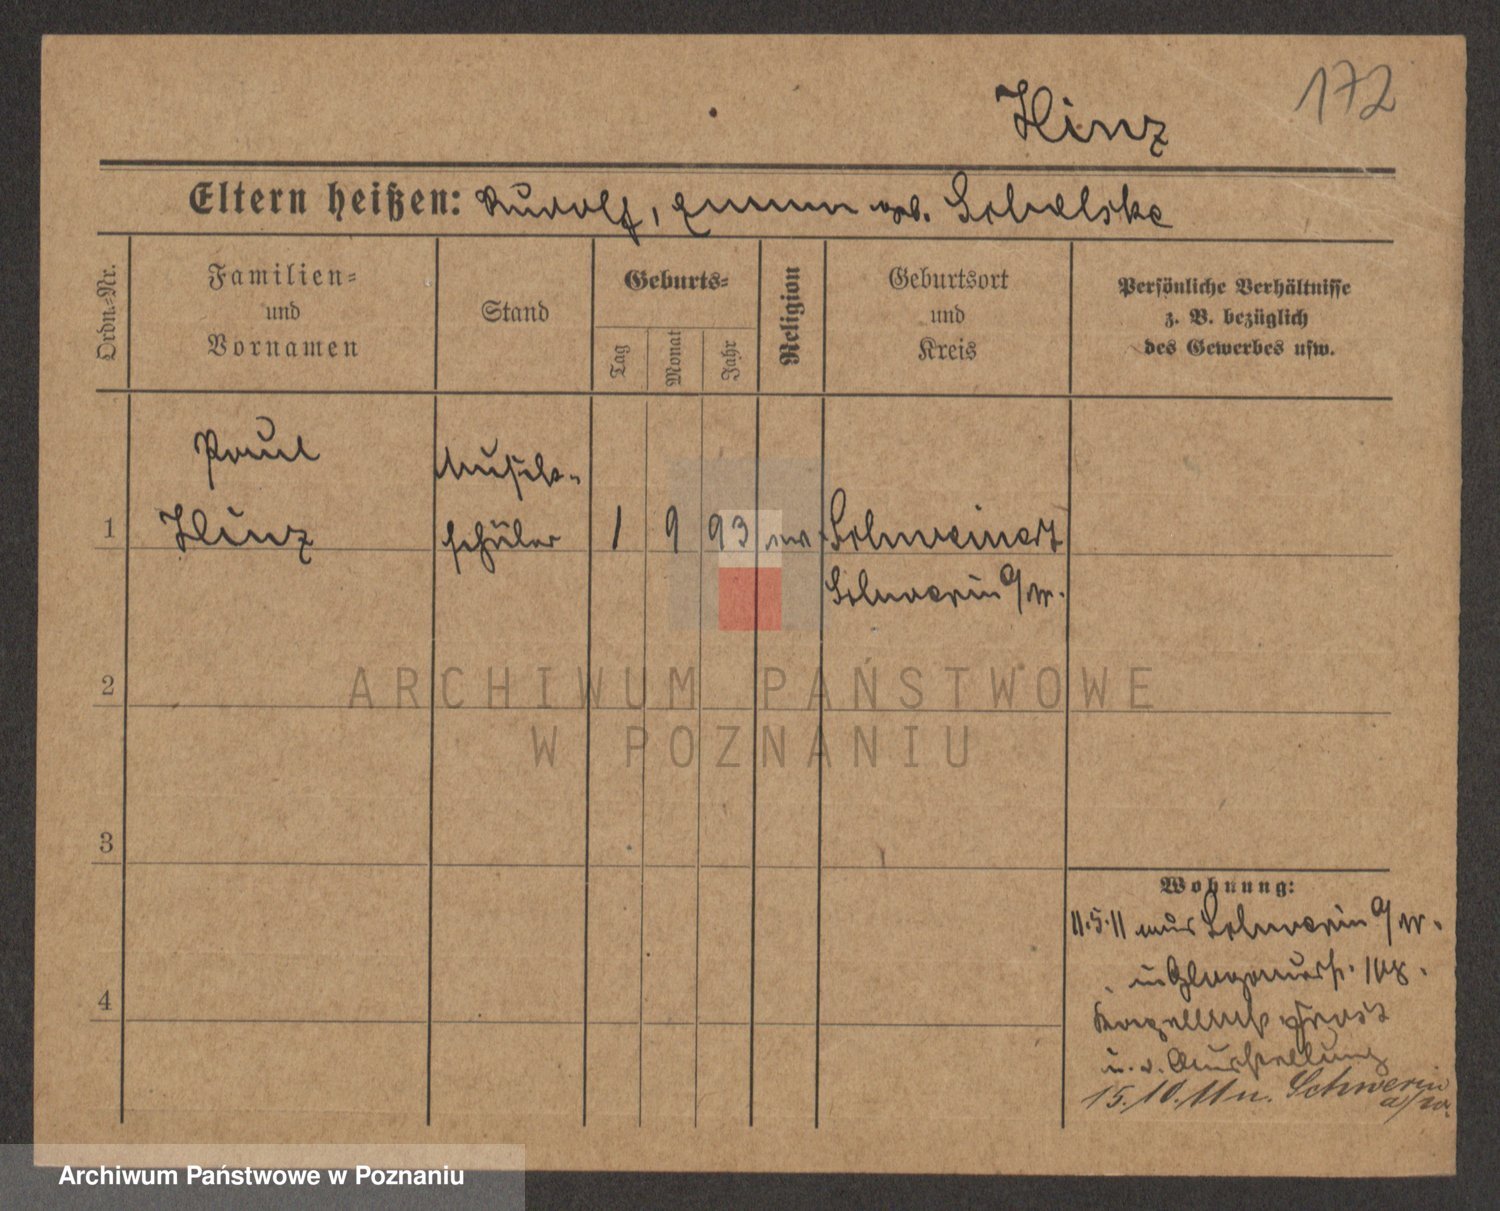 172
Hinz
Eltern heißen: Rudolf, Emma geb. Schelske
Ordn.-Nr.
Familien-
und
Vornamen
Stand
Geburts-
Tag
Monat
Jahr
Religion
Geburtsort
und
Kreis
Persönliche Verhältnisse
z. B. bezüglich
des Gewerbes usw.
Paul
Musik-
1
Hinz
schüler
1 9 93
Schweinert
Schwerin a/W.
2
ARCHIWUM PAŃSTWOWE
W POZNANIU
3
Wohnung:
11.5.11 aus Schwerin a/W.
4
Kapellmstr
u. d. Ausstellung
15.10.11 n. Schwerin
a/W.
Archiwum Państwowe w Poznaniu